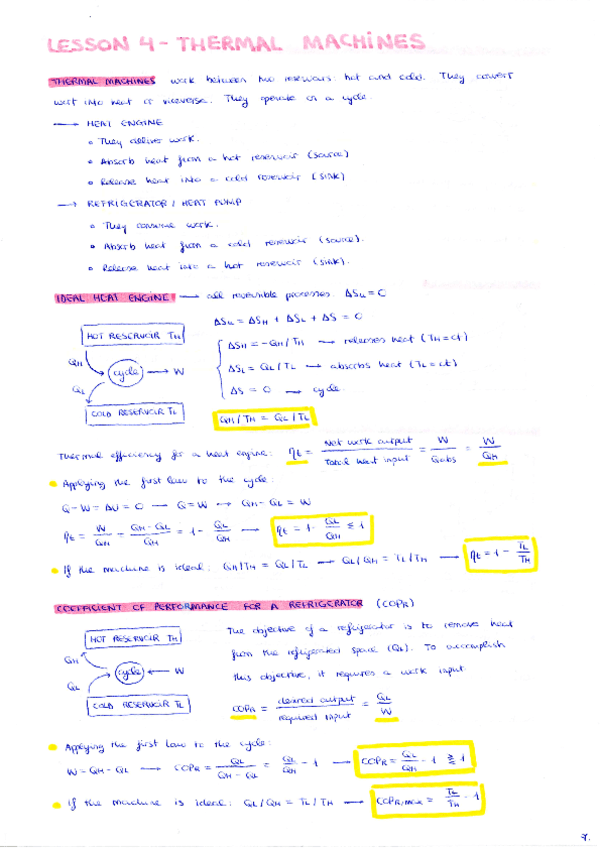 LESSON 4 - THERMAL MACHINES
THERMAL MACHINES work between two reservoirs: hot and cold. They convert
work into heat or viceverse. They operate on a cycle.
→ HEAT ENGINE
• They deliver work.
• Absorb heat from a hot reservoir (source)
• Release heat into a cold reservoir (sink)
→ REFRIGERATOR / HEAT PUMP
• They consume work.
• Absorb heat from a cold reservoir (source).
• Release heat into a hot reservoir (sink).
IDEAL HEAT ENGINE → all reversible processes. ΔSu = 0
ΔSu = ΔSH + ΔSL + ΔS = 0
HOT RESERVOIR TH
ΔSH = -QH / TH → releases heat (TH = ct)
QH
cycle → W
ΔSL = QL / TL → absorbs heat (TL = ct)
QL
ΔS = 0 → cycle
COLD RESERVOIR TL
QH / TH = QL / TL
Thermal efficiency for a heat engine: ηt = Net work output / Total heat input = W / Qabs = W / QH
• Applying the first law to the cycle:
Q - W = ΔU = 0 → Q = W → QH - QL = W
ηt = W / QH = QH - QL / QH = 1 - QL / QH → ηt = 1 - QL / QH ≤ 1
• If the machine is ideal: QH / TH = QL / TL → QL / QH = TL / TH → ηt = 1 - TL / TH
COEFFICIENT OF PERFORMANCE FOR A REFRIGERATOR (COPR)
HOT RESERVOIR TH
The objective of a refrigerator is to remove heat
QH
from the refrigerated space (QL). To accomplish
cycle ← W
this objective, it requires a work input
QL
COLD RESERVOIR TL
COPR = desired output / required input = QL / W
• Applying the first law to the cycle:
W = QH - QL → COPR = QL / QH - QL = QL / QH - 1 → COPR = QL / QH - 1 ≷ 1
• If the machine is ideal: QL / QH = TL / TH → COPR,max = TL / TH - 1
7.